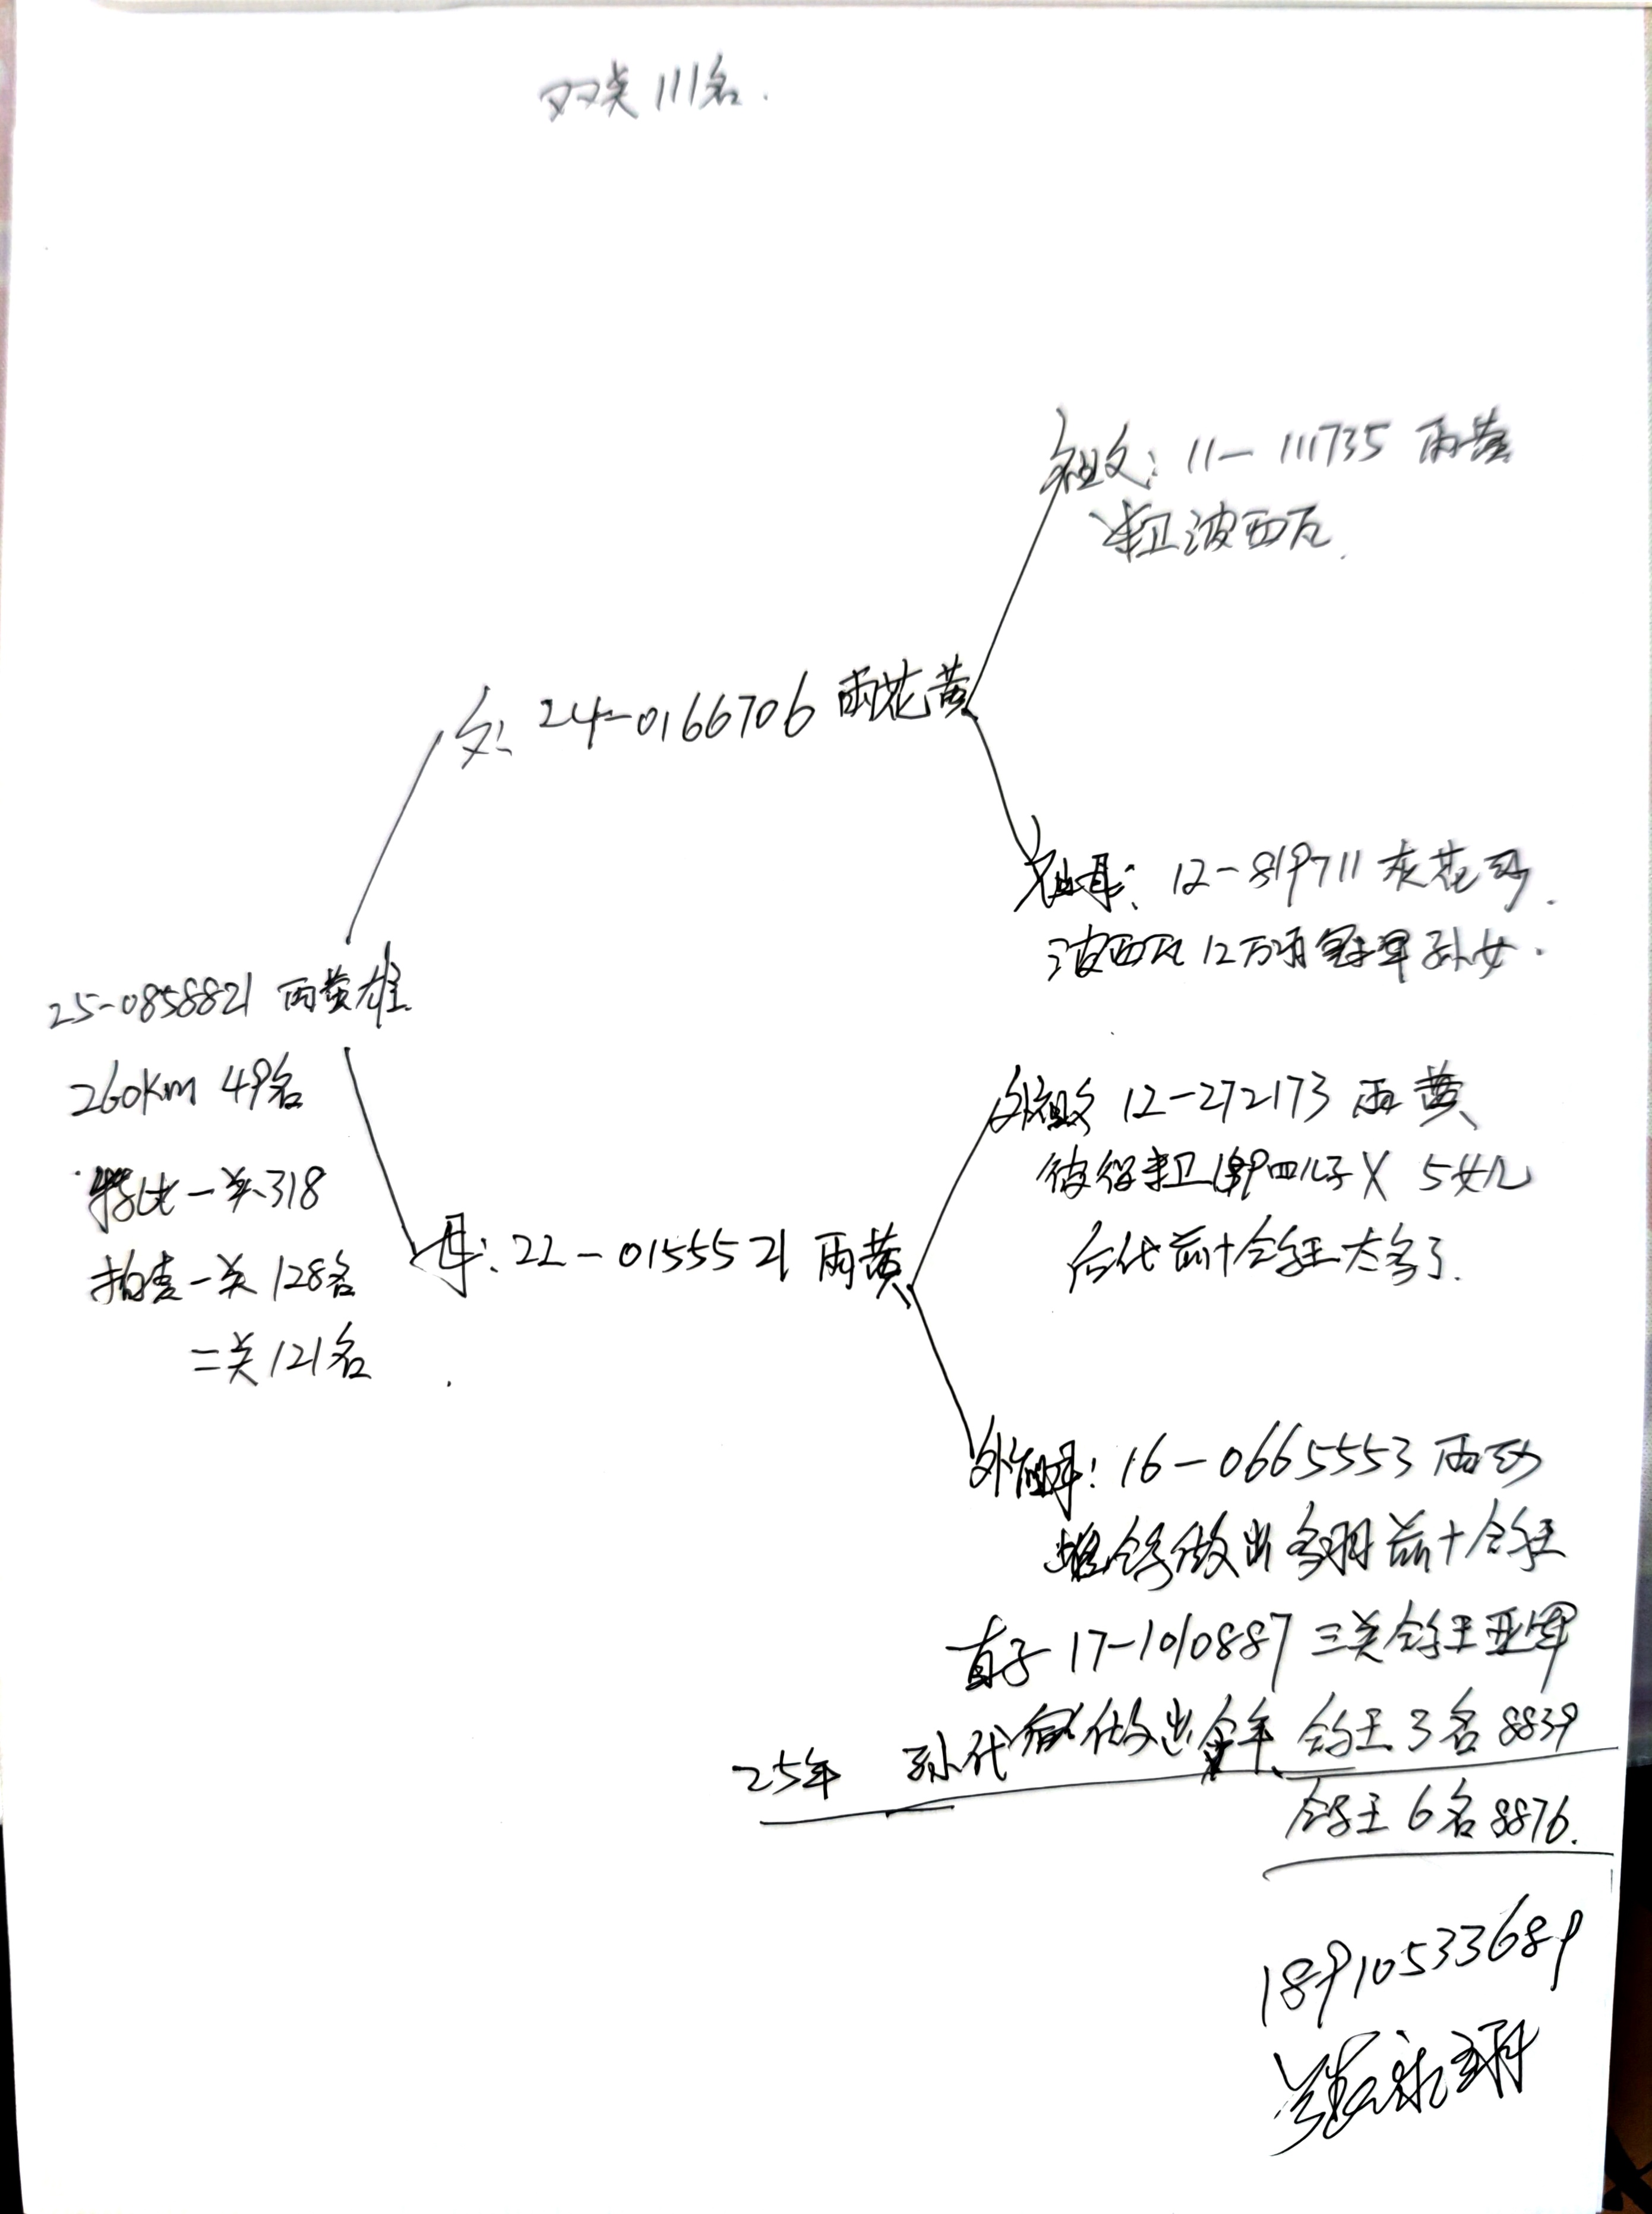 双关111名.
祖父: 11-111735 雨黄
拉波西瓦.
父: 24-0166706 雨花黄
祖母: 12-819711 灰花
波西瓦12万羽冠军孙女.
25-0858821 雨黄雄
260km 49名
特比一关318
拍卖一关128名
二关121名
外祖父 12-272173 雨黄
彼得 四儿子 X 5女儿
后代前十鸽王太多了.
母: 22-0155521 雨黄
外祖母: 16-0665553 雨
鸽做出多羽前十鸽王
直子 17-1010887 三关鸽王亚军
25年 孙代 做出 鸽王3名 8839
鸽王6名 8876.
18910533689